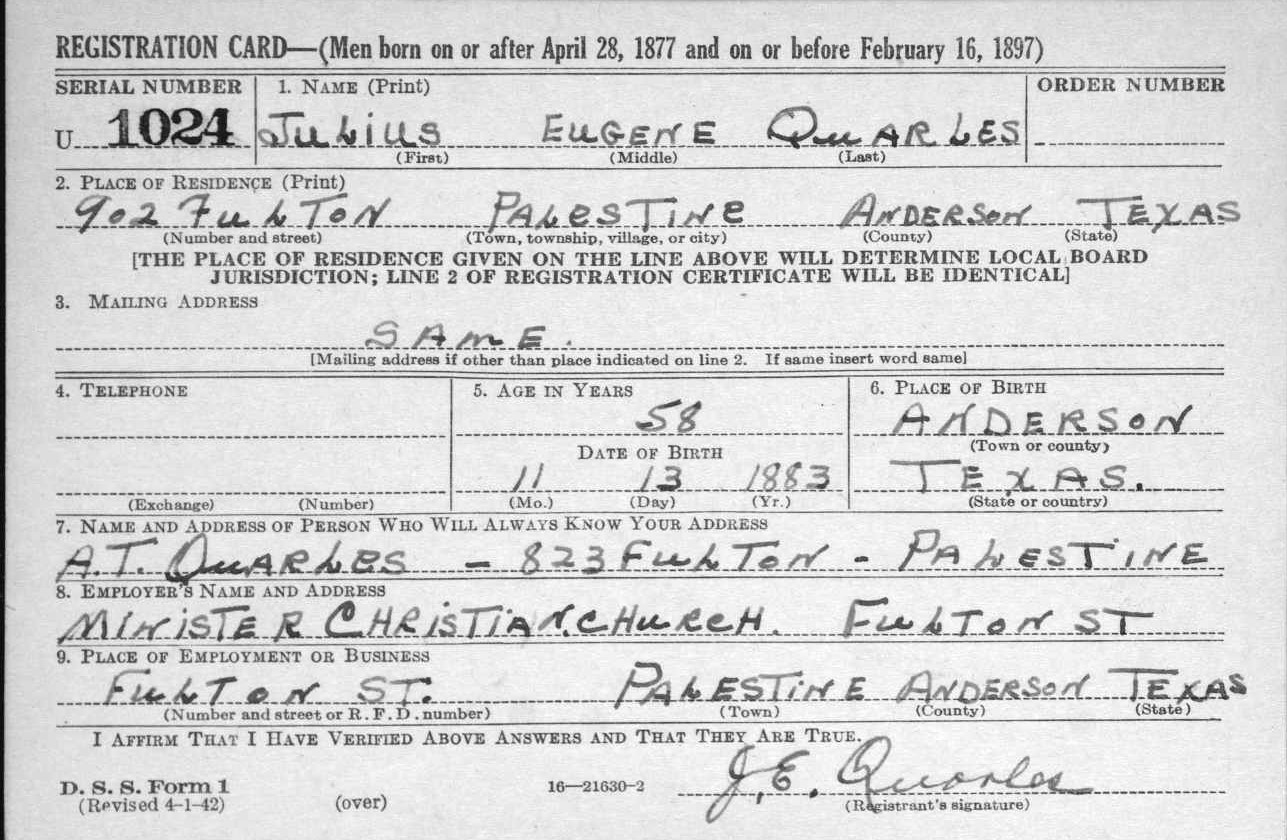 REGISTRATION CARD—(Men born on or after April 28, 1877 and on or before February 16, 1897)
SERIAL NUMBER 1. NAME (Print) ORDER NUMBER
U 1024 JULIUS EUGENE QUARLES
(First) (Middle) (Last)
2. PLACE OF RESIDENCE (Print)
902 FULTON PALESTINE ANDERSON TEXAS
(Number and street) (Town, township, village, or city) (County) (State)
[THE PLACE OF RESIDENCE GIVEN ON THE LINE ABOVE WILL DETERMINE LOCAL BOARD
JURISDICTION; LINE 2 OF REGISTRATION CERTIFICATE WILL BE IDENTICAL]
3. MAILING ADDRESS
SAME.
[Mailing address if other than place indicated on line 2. If same insert word same]
4. TELEPHONE 5. AGE IN YEARS 6. PLACE OF BIRTH
58 ANDERSON
DATE OF BIRTH (Town or county)
11 13 1883 TEXAS.
(Exchange) (Number) (Mo.) (Day) (Yr.) (State or country)
7. NAME AND ADDRESS OF PERSON WHO WILL ALWAYS KNOW YOUR ADDRESS
A.T. QUARLES – 823 FULTON - PALESTINE
8. EMPLOYER'S NAME AND ADDRESS
MINISTER CHRISTIAN.CHURCH. FULTON ST
9. PLACE OF EMPLOYMENT OR BUSINESS
FULTON ST. PALESTINE ANDERSON TEXAS
(Number and street or R. F. D. number) (Town) (County) (State)
I AFFIRM THAT I HAVE VERIFIED ABOVE ANSWERS AND THAT THEY ARE TRUE.
J.E. Quarles
D. S. S. Form 1 16—21630-2
(Revised 4-1-42) (over) (Registrant's signature)